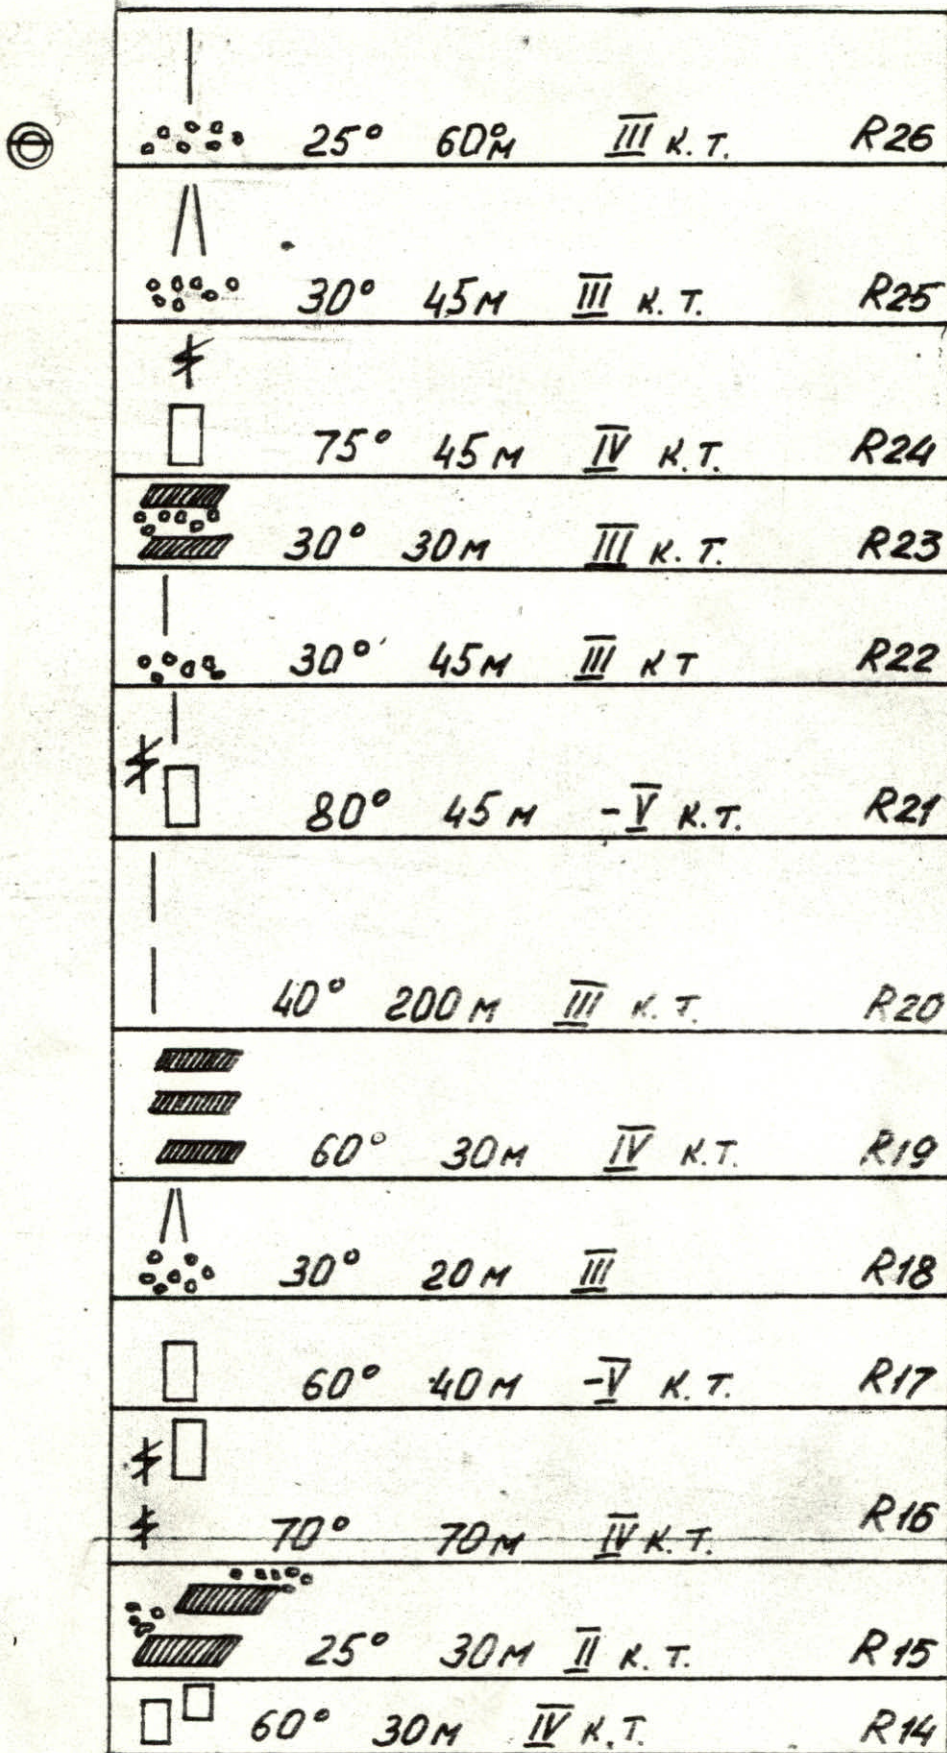 25° 60м III к.т. R26
30° 45м III к.т. R25
75° 45м IV к.т. R24
30° 30м III к.т. R23
30° 45м III кт R22
80° 45м -V к.т. R21
40° 200м III к.т. R20
60° 30м IV к.т. R19
30° 20м III R18
60° 40м -V к.т. R17
70° 70м IV к.т. R16
25° 30м II к.т. R15
60° 30м IV к.т. R14